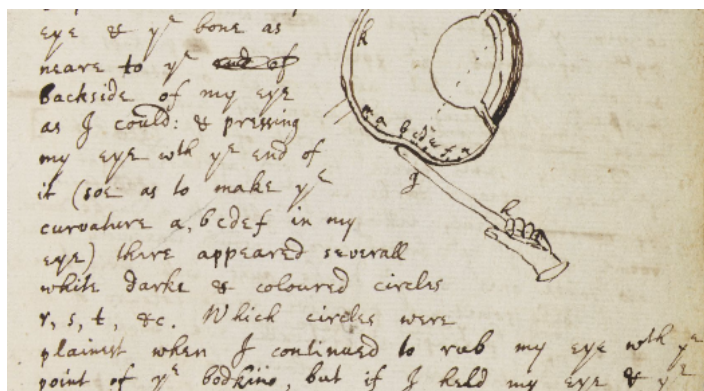 eye & yᵉ bone as
neare to yᵉ end of
backside of my eye
as I could: & pressing
my eye wth yᵉ end of
it (soe as to make yᵉ
curvature a, bcdef in my
eye) there appeared severall
white darke & coloured circles
r, s, t, &c. Which circles were
plainest when I continued to rub my eye wth yᵉ
point of yᵉ bodkine, but if I held my eye & yᵉ
k
g
h